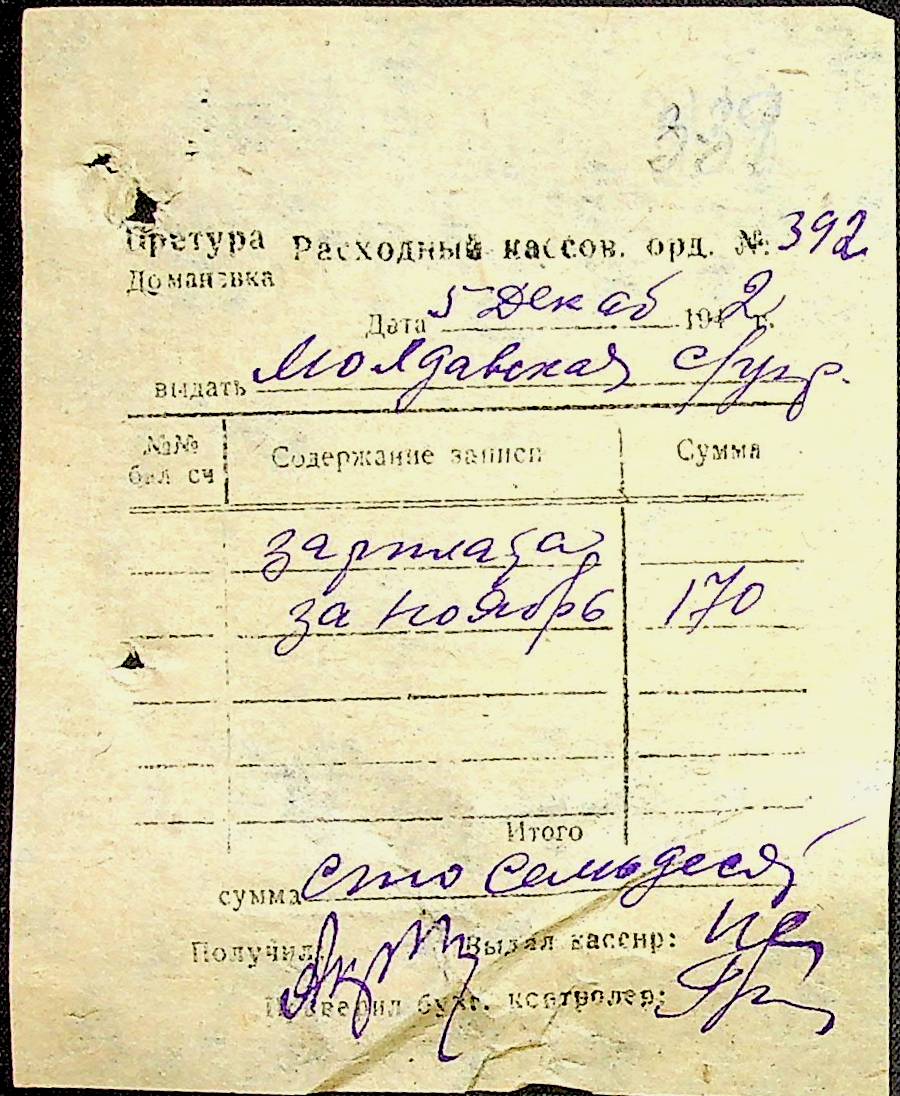 339
Претура Расходный кассов. орд. № 392
Домановка
Дата 5 Декаб 1942 г.
выдать Молдавская
№№ Содержание записи Сумма
бал сч
зарплата
за ноябрь 170
Итого
сумма сто семьдесят
Получил Выдал кассир:
Проверил бухг. контролер: